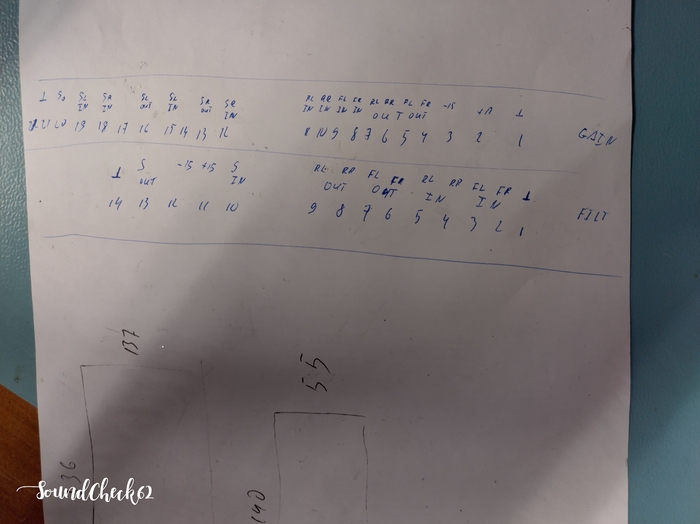 ⊥ SL IN SR IN SL OUT SL IN SR OUT SR IN RL IN RR IN FL IN FR IN RL RR OUT FL FR OUT -15 +15 ⊥
20 19 18 17 16 15 14 13 12 11 10 9 8 7 6 5 4 3 2 1 GAIN
⊥ S OUT -15 +15 S IN RL RR OUT FL FR OUT RL RR IN FL FR IN ⊥
14 13 12 11 10 9 8 7 6 5 4 3 2 1 FILT
137
55
36
140
SoundCheck62